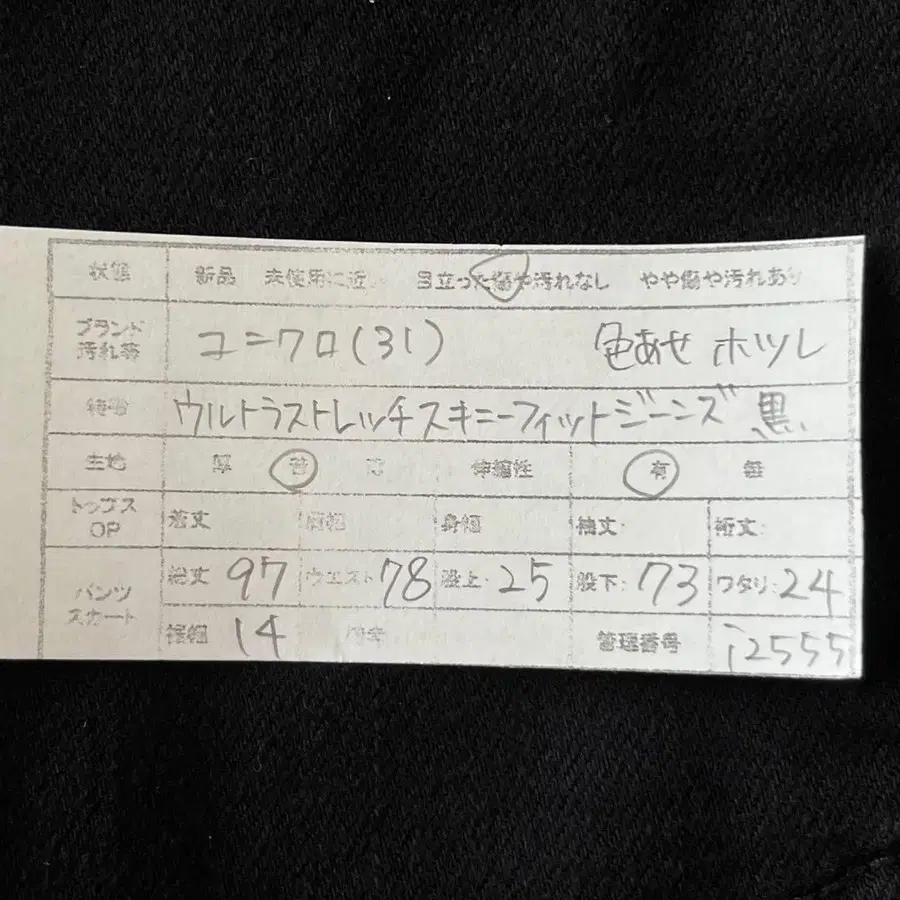 状態 新品 未使用に近 目立った傷や汚れなし やや傷や汚れあり
ブランド 汚れ等 ユニクロ(31) 色あせ ホツレ
特徴 ウルトラストレッチスキニーフィットジーンズ 黒
生地 厚 普 薄 伸縮性 有 無
トップス OP 着丈 肩幅 身幅 袖丈: 裄丈:
パンツ スカート 総丈 97 ウエスト 78 股上: 25 股下: 73 ワタリ: 24
裾幅 14 管理番号 i2555